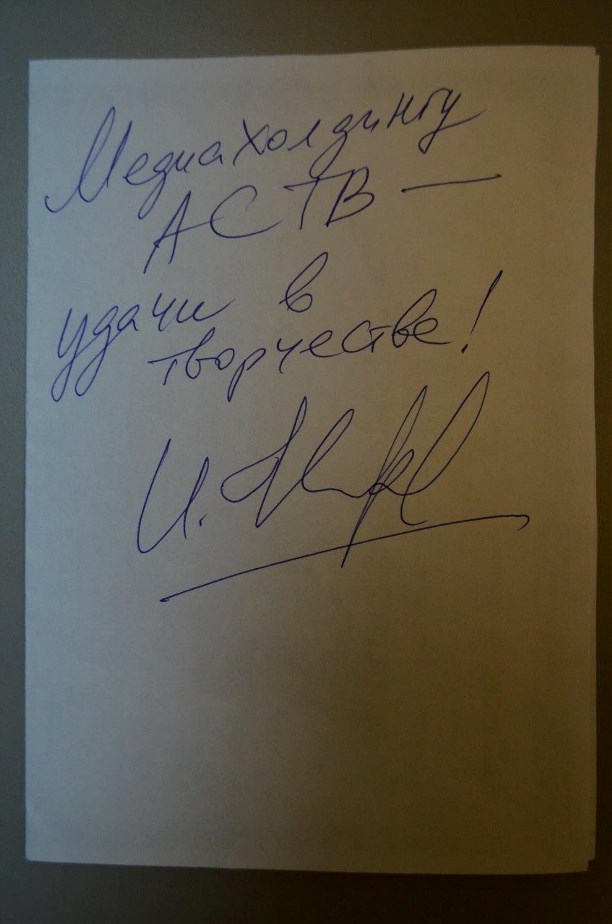 Медиахолдингу
АСТВ —
удачи в
творчестве!
И.